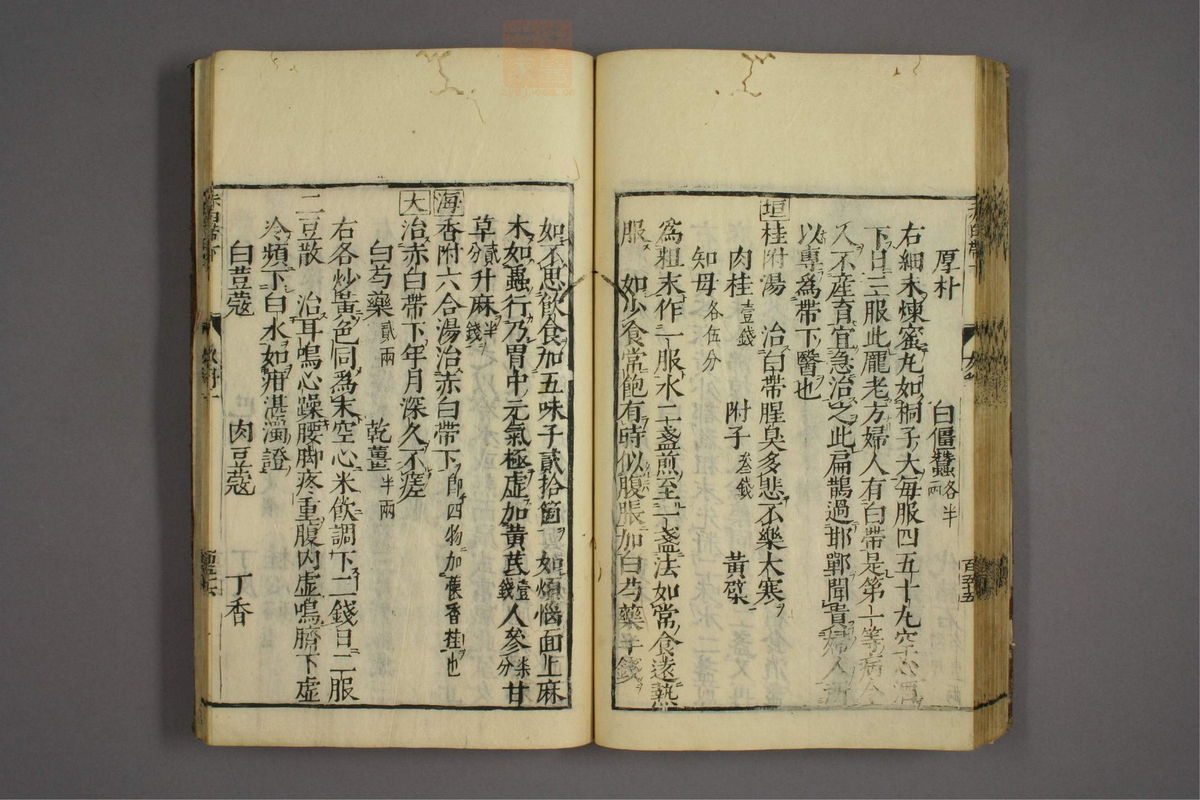 厚朴 白僵蠶各半兩
右細末煉蜜丸如桐子大每服四五十丸空心
下日三服此龐老方婦人有白帶是第一等病令
人不產育宜急治之此扁鵲過邯鄲聞貴婦人所
以專爲帶下醫也
垣桂附湯 治白帶腥臭多悲不樂大寒
肉桂壹錢 附子叁錢 黃蘗
知母各伍分
爲粗末作一服水二盞煎至一盞法如常食遠熱
服 如少食常飽有時似腹脹加白芍藥半錢
如不思飲食加五味子貳拾箇 如煩惱面上麻
木如蟲行乃胃中元氣極虛加黃芪壹錢人參柒分甘
草貳分升麻半錢
海香附六合湯治赤白帶下即四物加香桂也
大治赤白帶下年月深久不瘥
白芍藥貳兩 乾薑半兩
右各炒黃色同爲末空心米飲調下二錢日二服
二豆散 治耳鳴心躁腰脚疼重腹內虛鳴臍下虛
冷頻下白水如泔湛濁證
白荳蔻 肉豆蔻 丁香
赤白帶下
百五十五